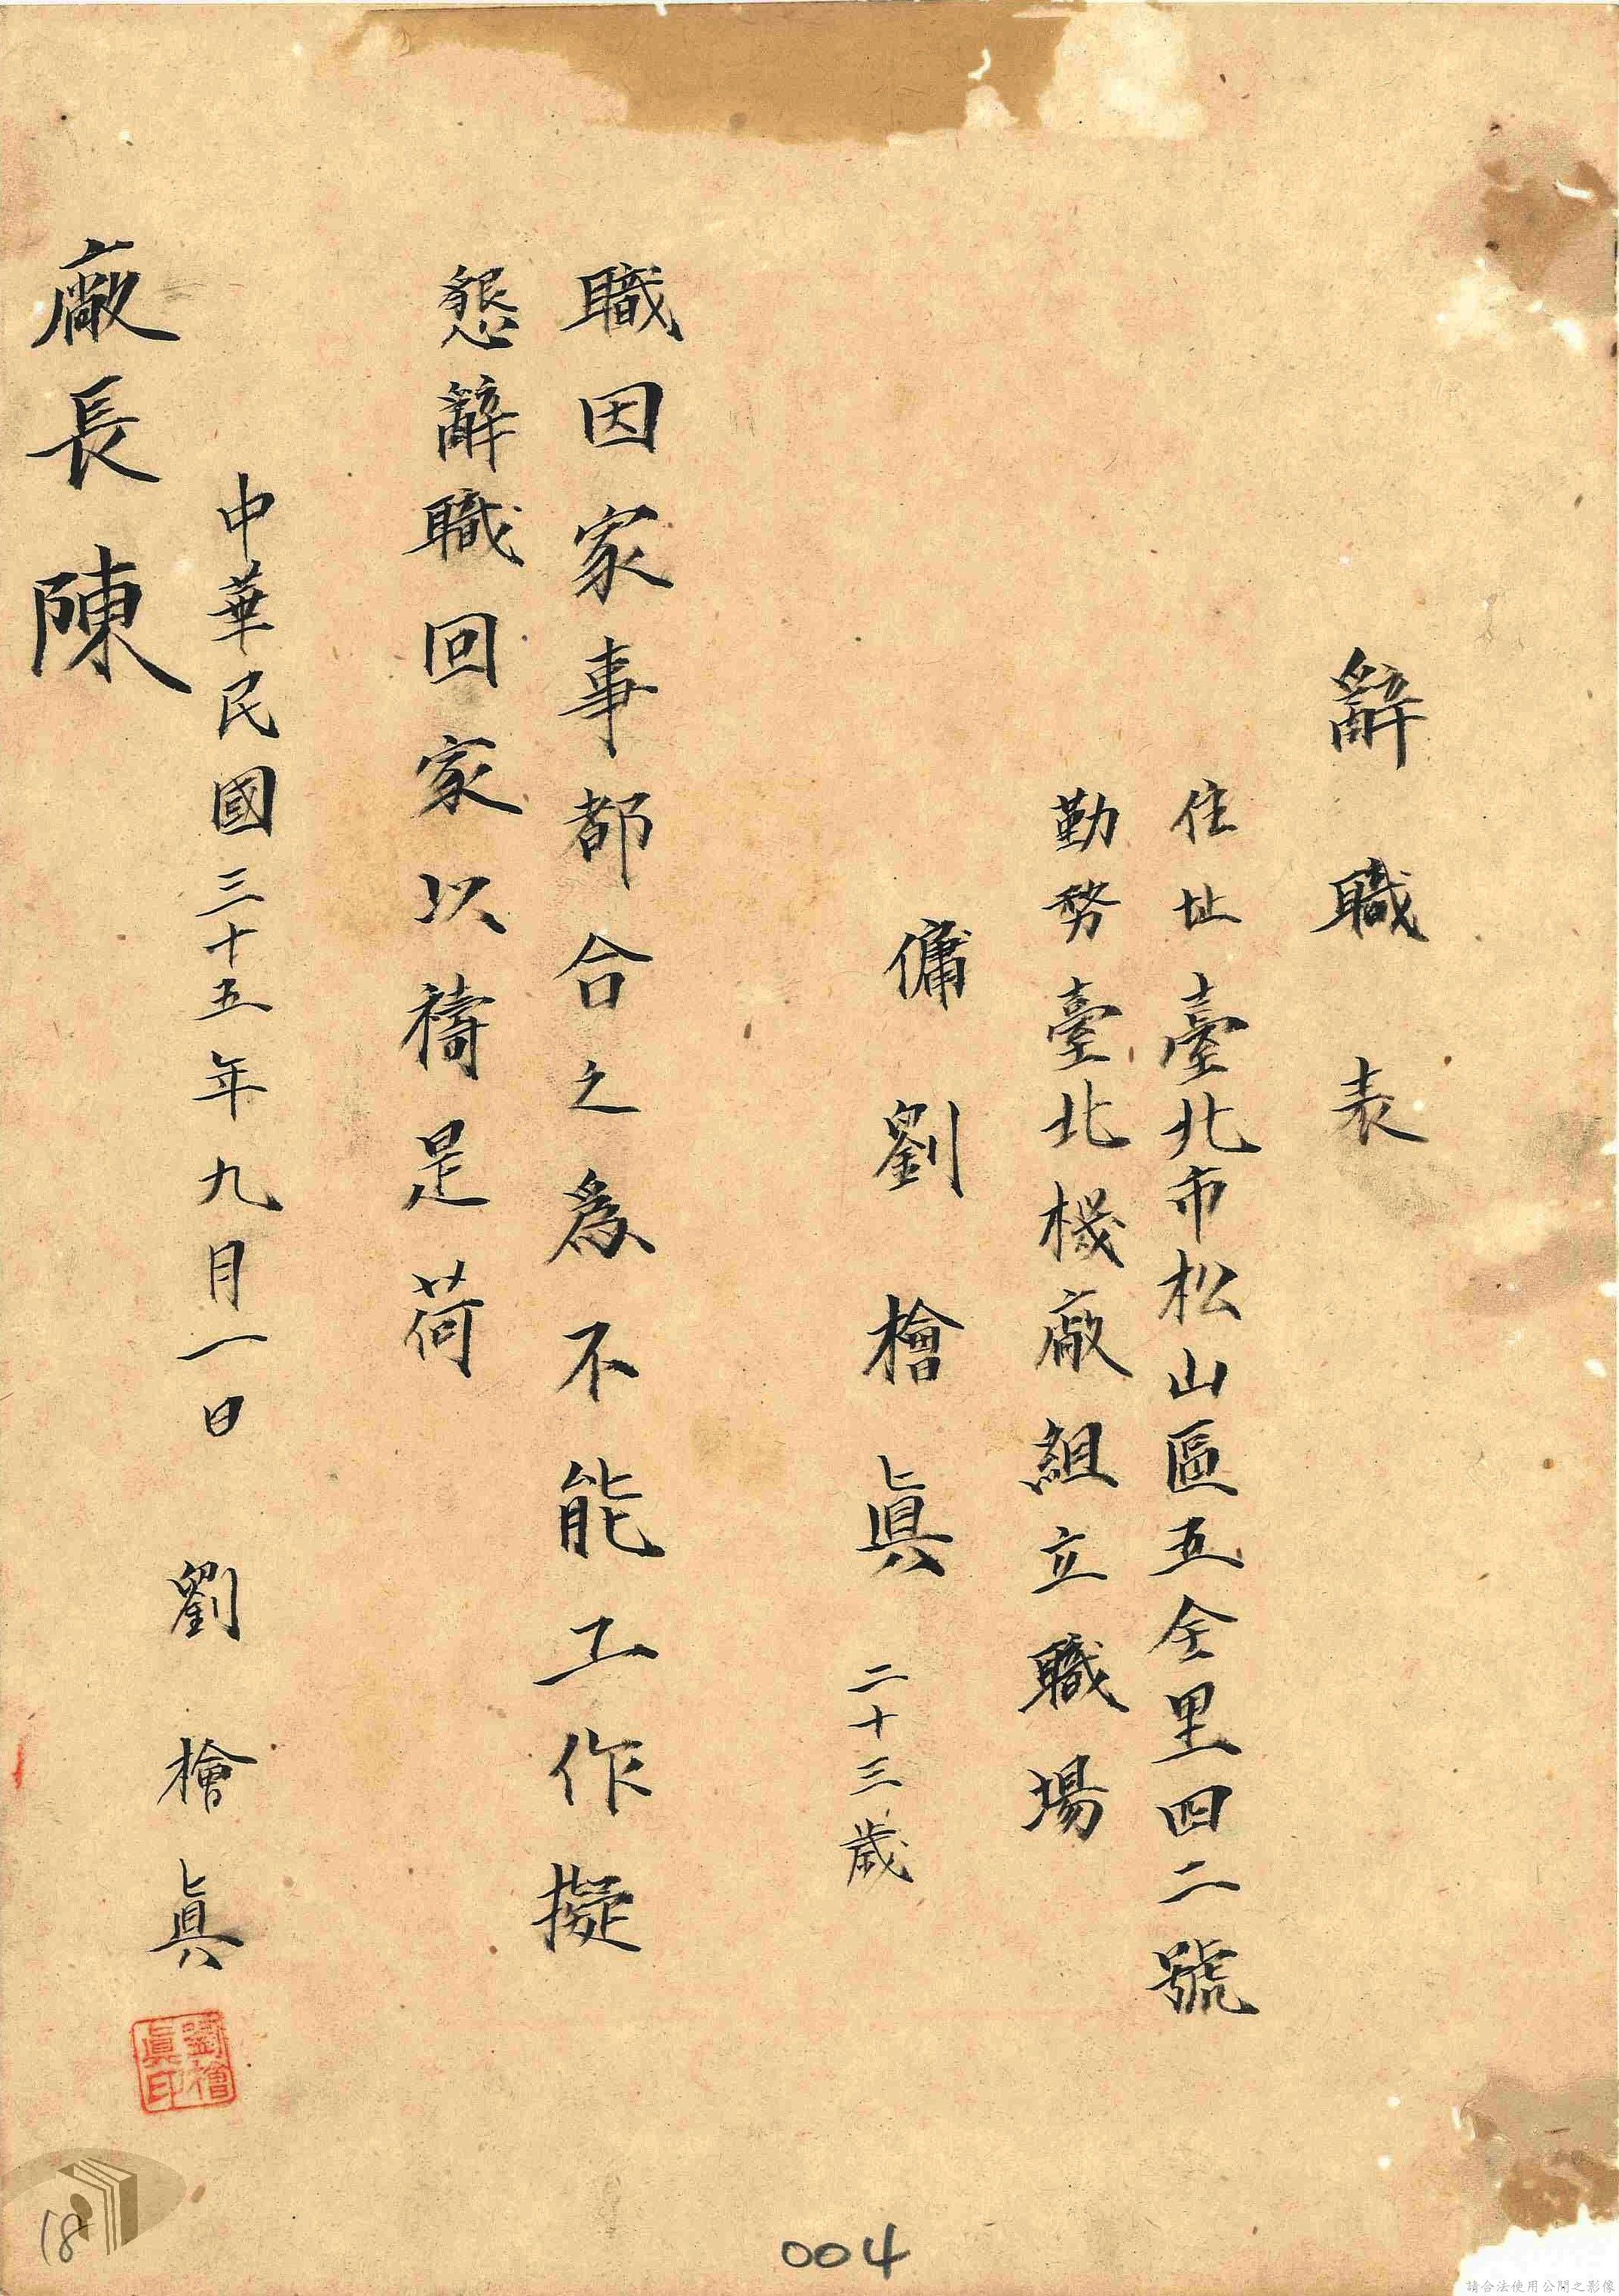 辭職表
住址臺北市松山區五全里四二號
勤務臺北機廠組立職場
傭劉檜眞 二十三歲
職因家事都合之為不能工作擬
懇辭職回家以禱是荷
中華民國三十五年九月一日 劉檜眞
劉檜眞印
廠長陳
18
004
請合法使用公開之影像